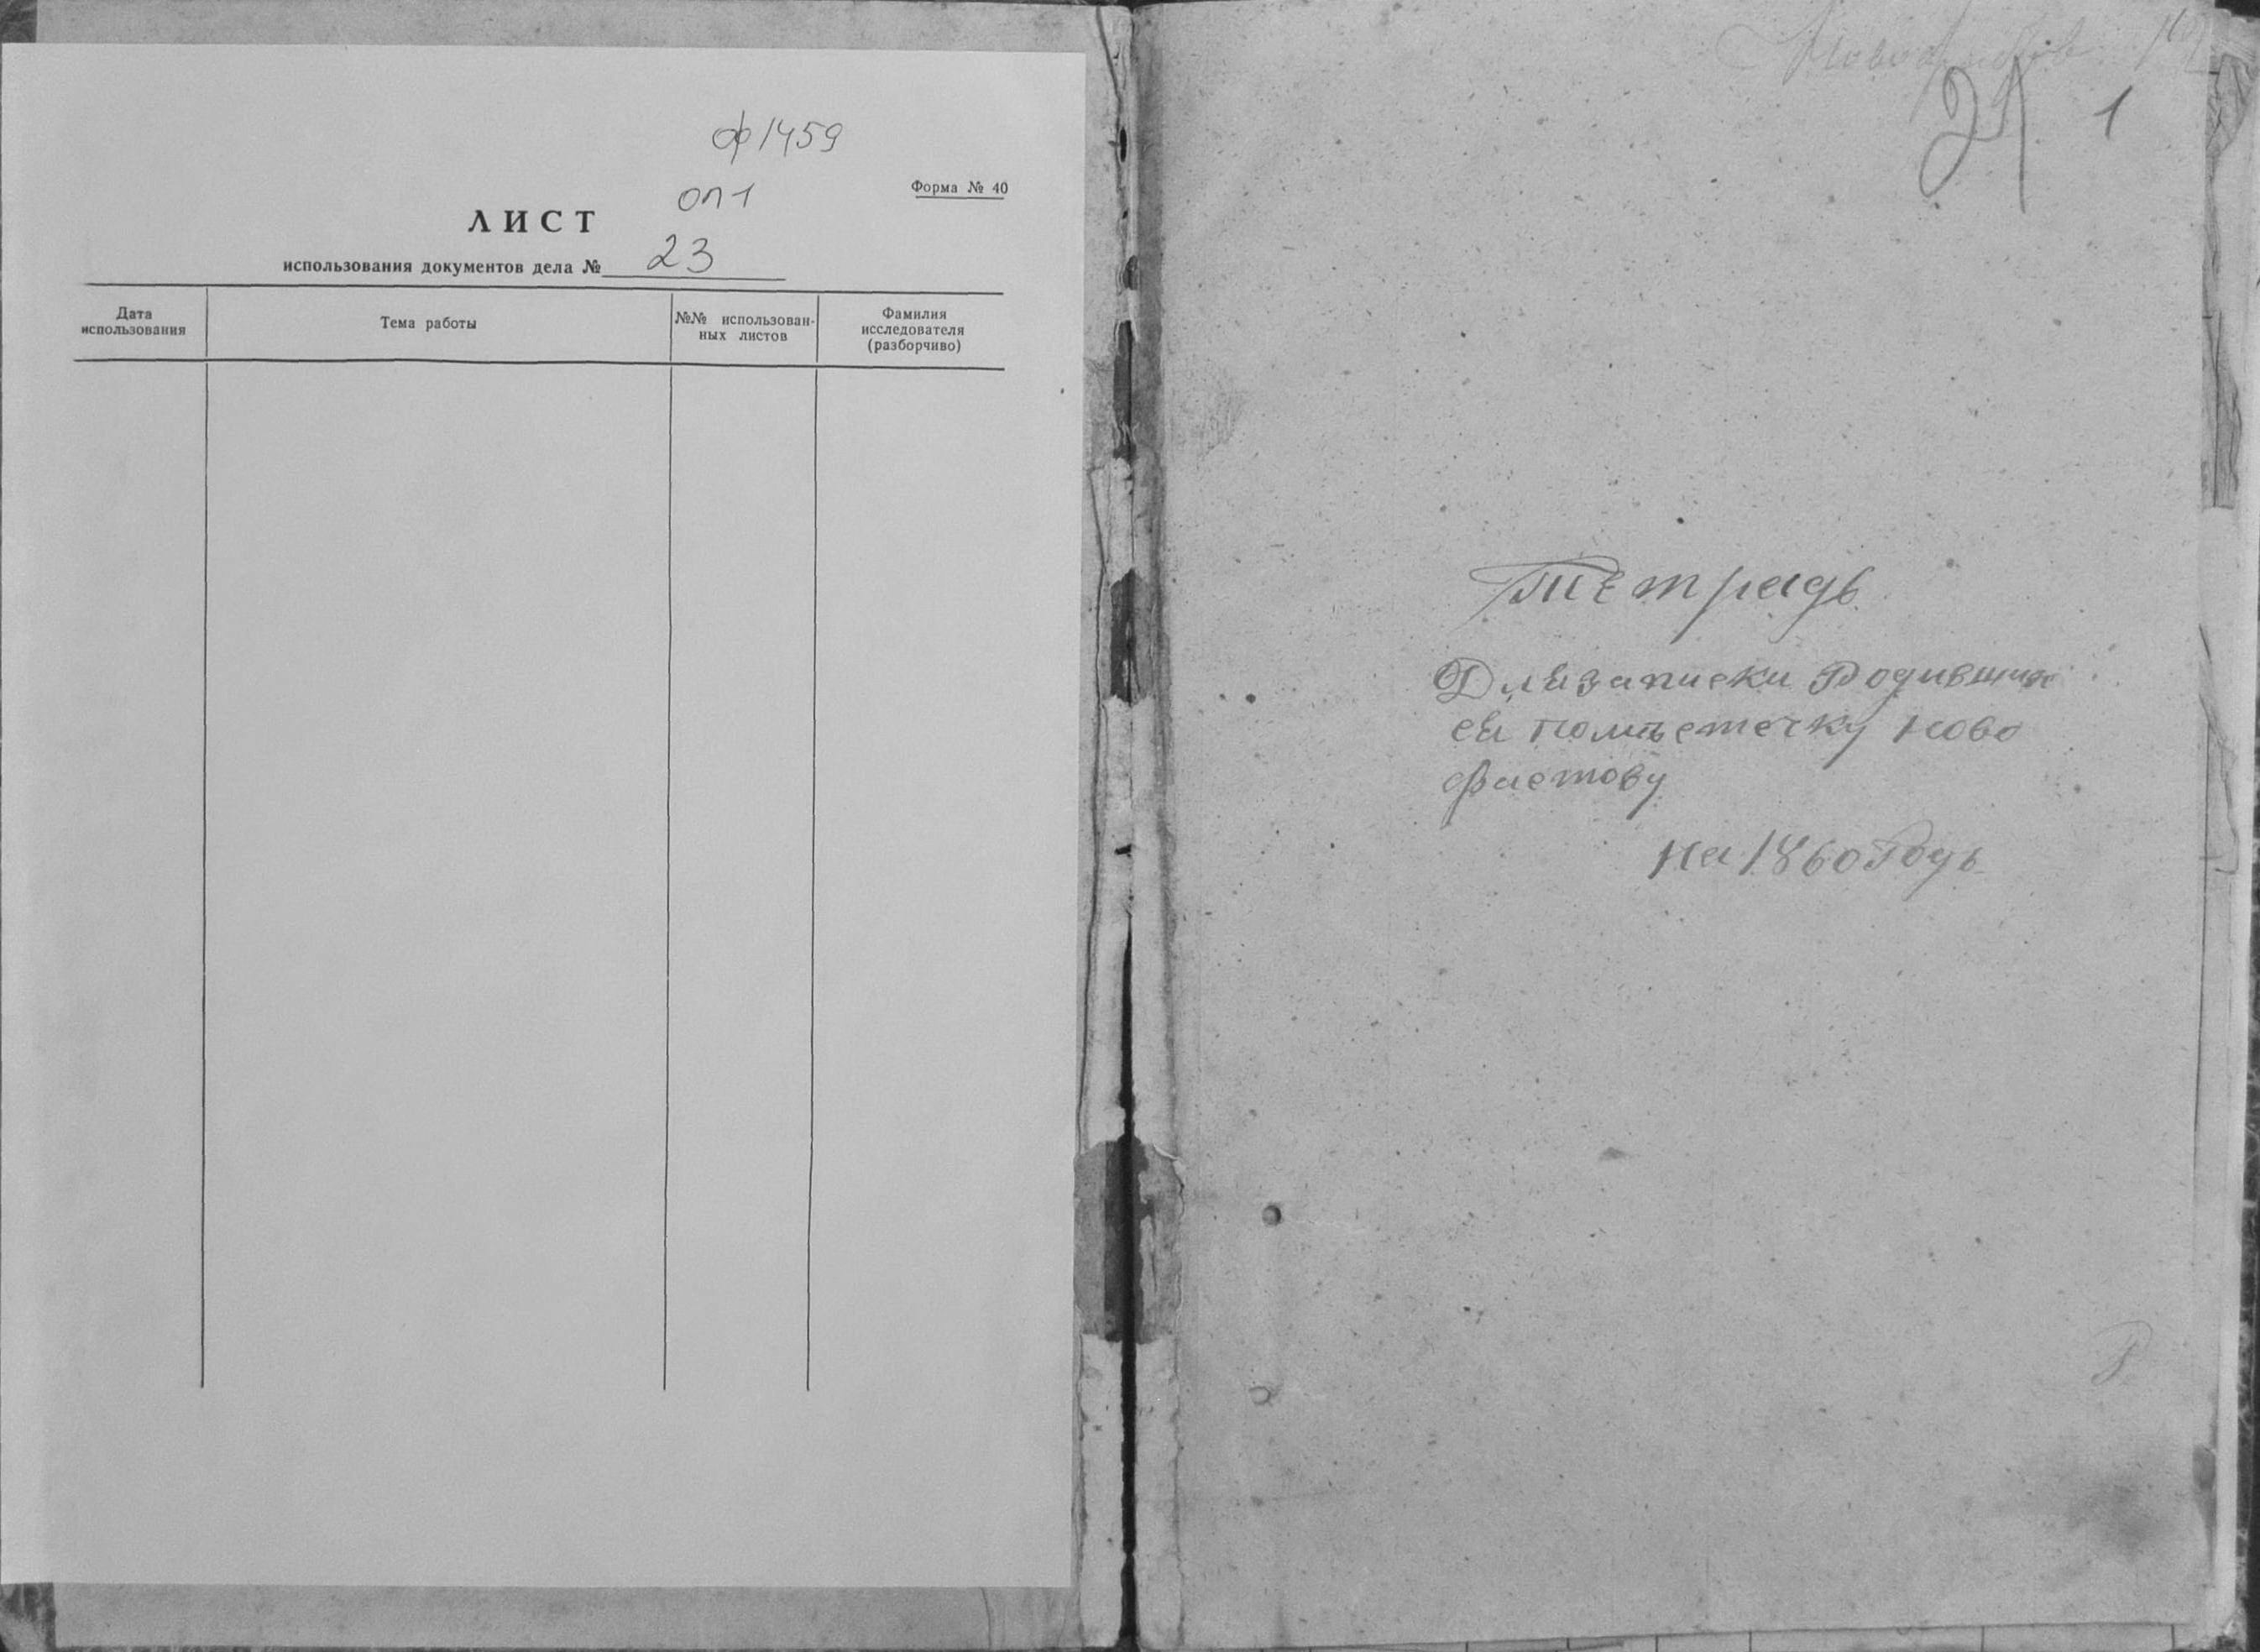 ф 1459
оп 1
Форма № 40
ЛИСТ
использования документов дела № 23
Дата
использования
Тема работы
№№ использован-
ных листов
Фамилия
исследователя
(разборчиво)
1
Тетрадь
Длязаписки Родивших
ся поместечку Ново
фастову
на 1860 Годъ